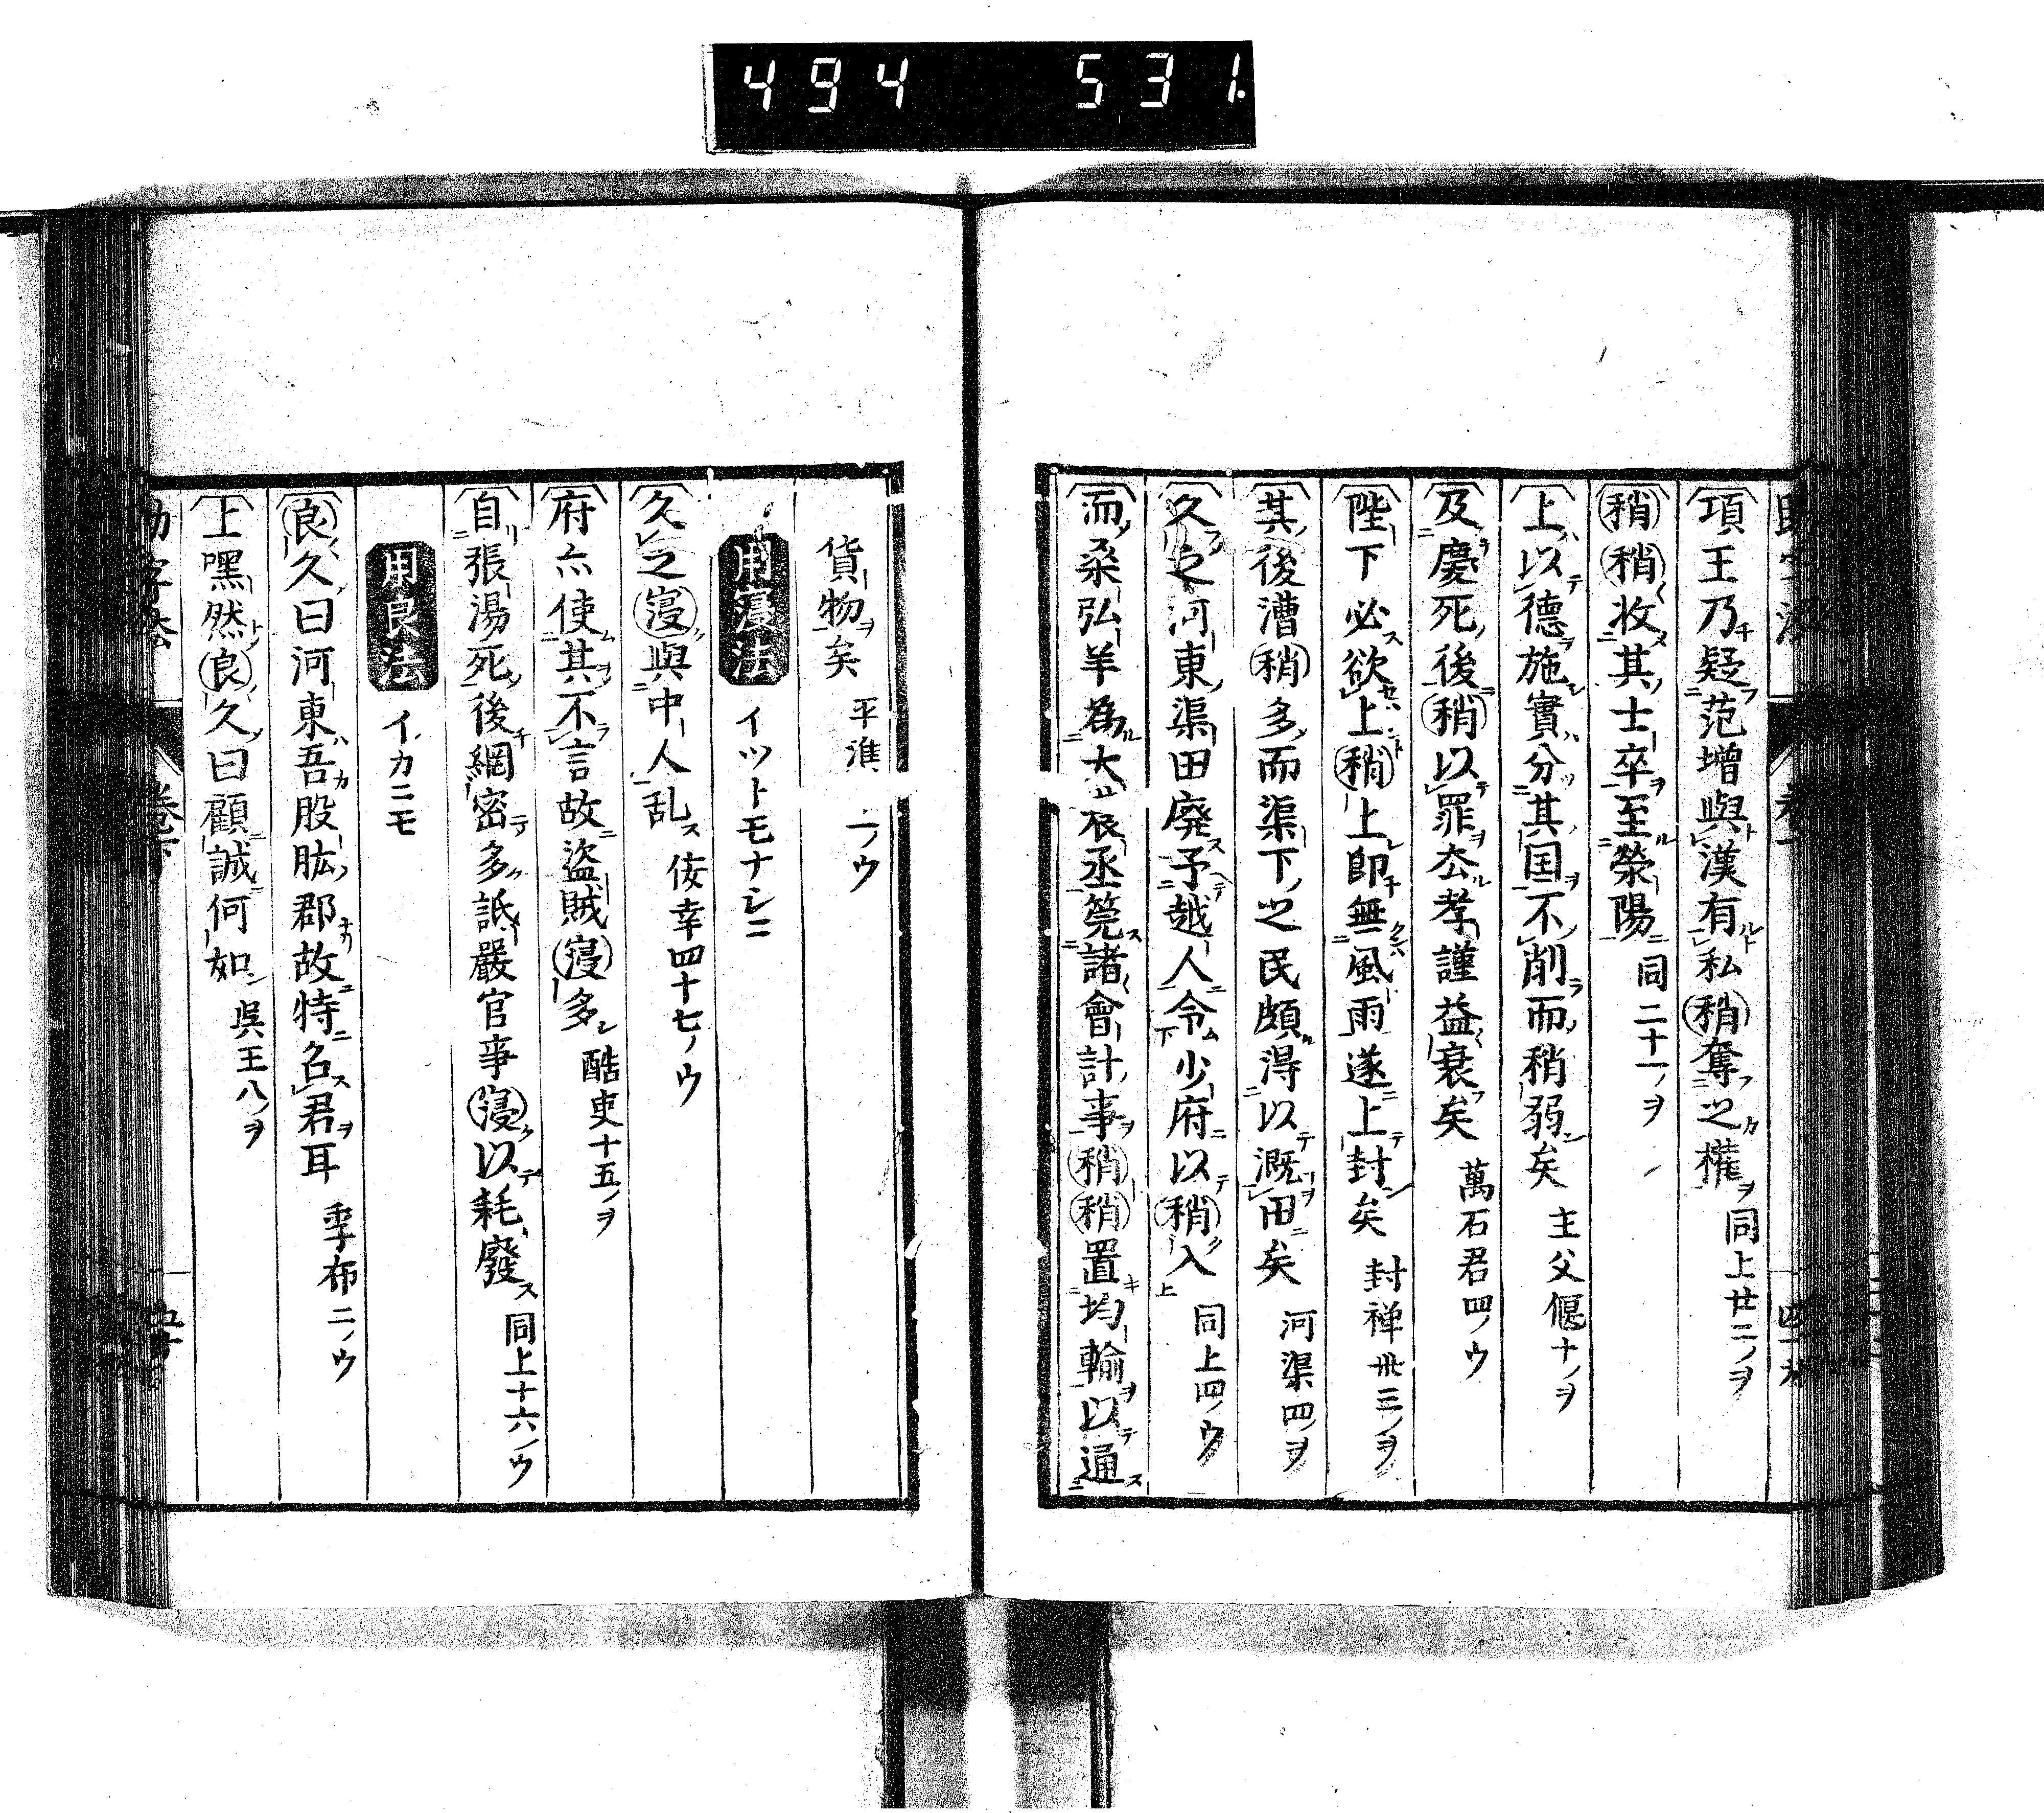 494 531.
項王乃疑范增與漢有私稍奪之權 同上廿二ノヲ
稍稍收其士卒至滎陽 同二十一ノヲ
上以德施實分其国不削而稍弱矣 主父偃十ノヲ
及慶死後稍以罪去孝謹益衰矣 萬石君四ノウ
陛下必欲上稍上即無風雨遂上封矣 封禅卅三ノヲ
其後漕稍多而渠下之民頗得以溉田矣 河渠四ノヲ
久之河東渠田廃予越人令少府以稍入 同上四ノウ
而桒弘羊為大農丞筦諸會計事稍稍置均輸以通
貨物矣 平準 一ノウ
用寖法 イツトモナシニ
久之寖與中人乱 佞幸四十七ノウ
府亦使其不言故盗賊寖多 酷吏十五ノヲ
自張湯死後網密多詆嚴官事寖以耗廢 同上十六ノウ
用良法 イカニモ
良久曰河東吾股肱郡故特召君耳 季布二ノウ
上嘿然良久曰顧誠何如 吳王八ノヲ
助字法 卷下